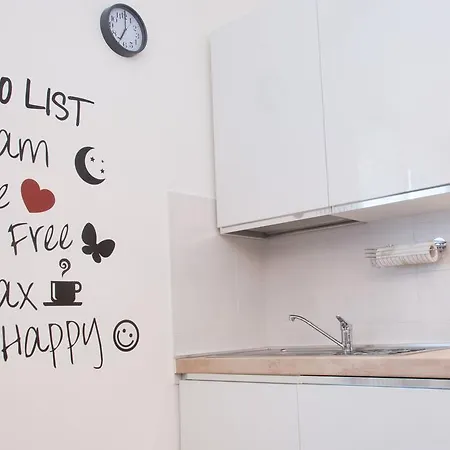 O LIST
am
e
Free
ax
Happy